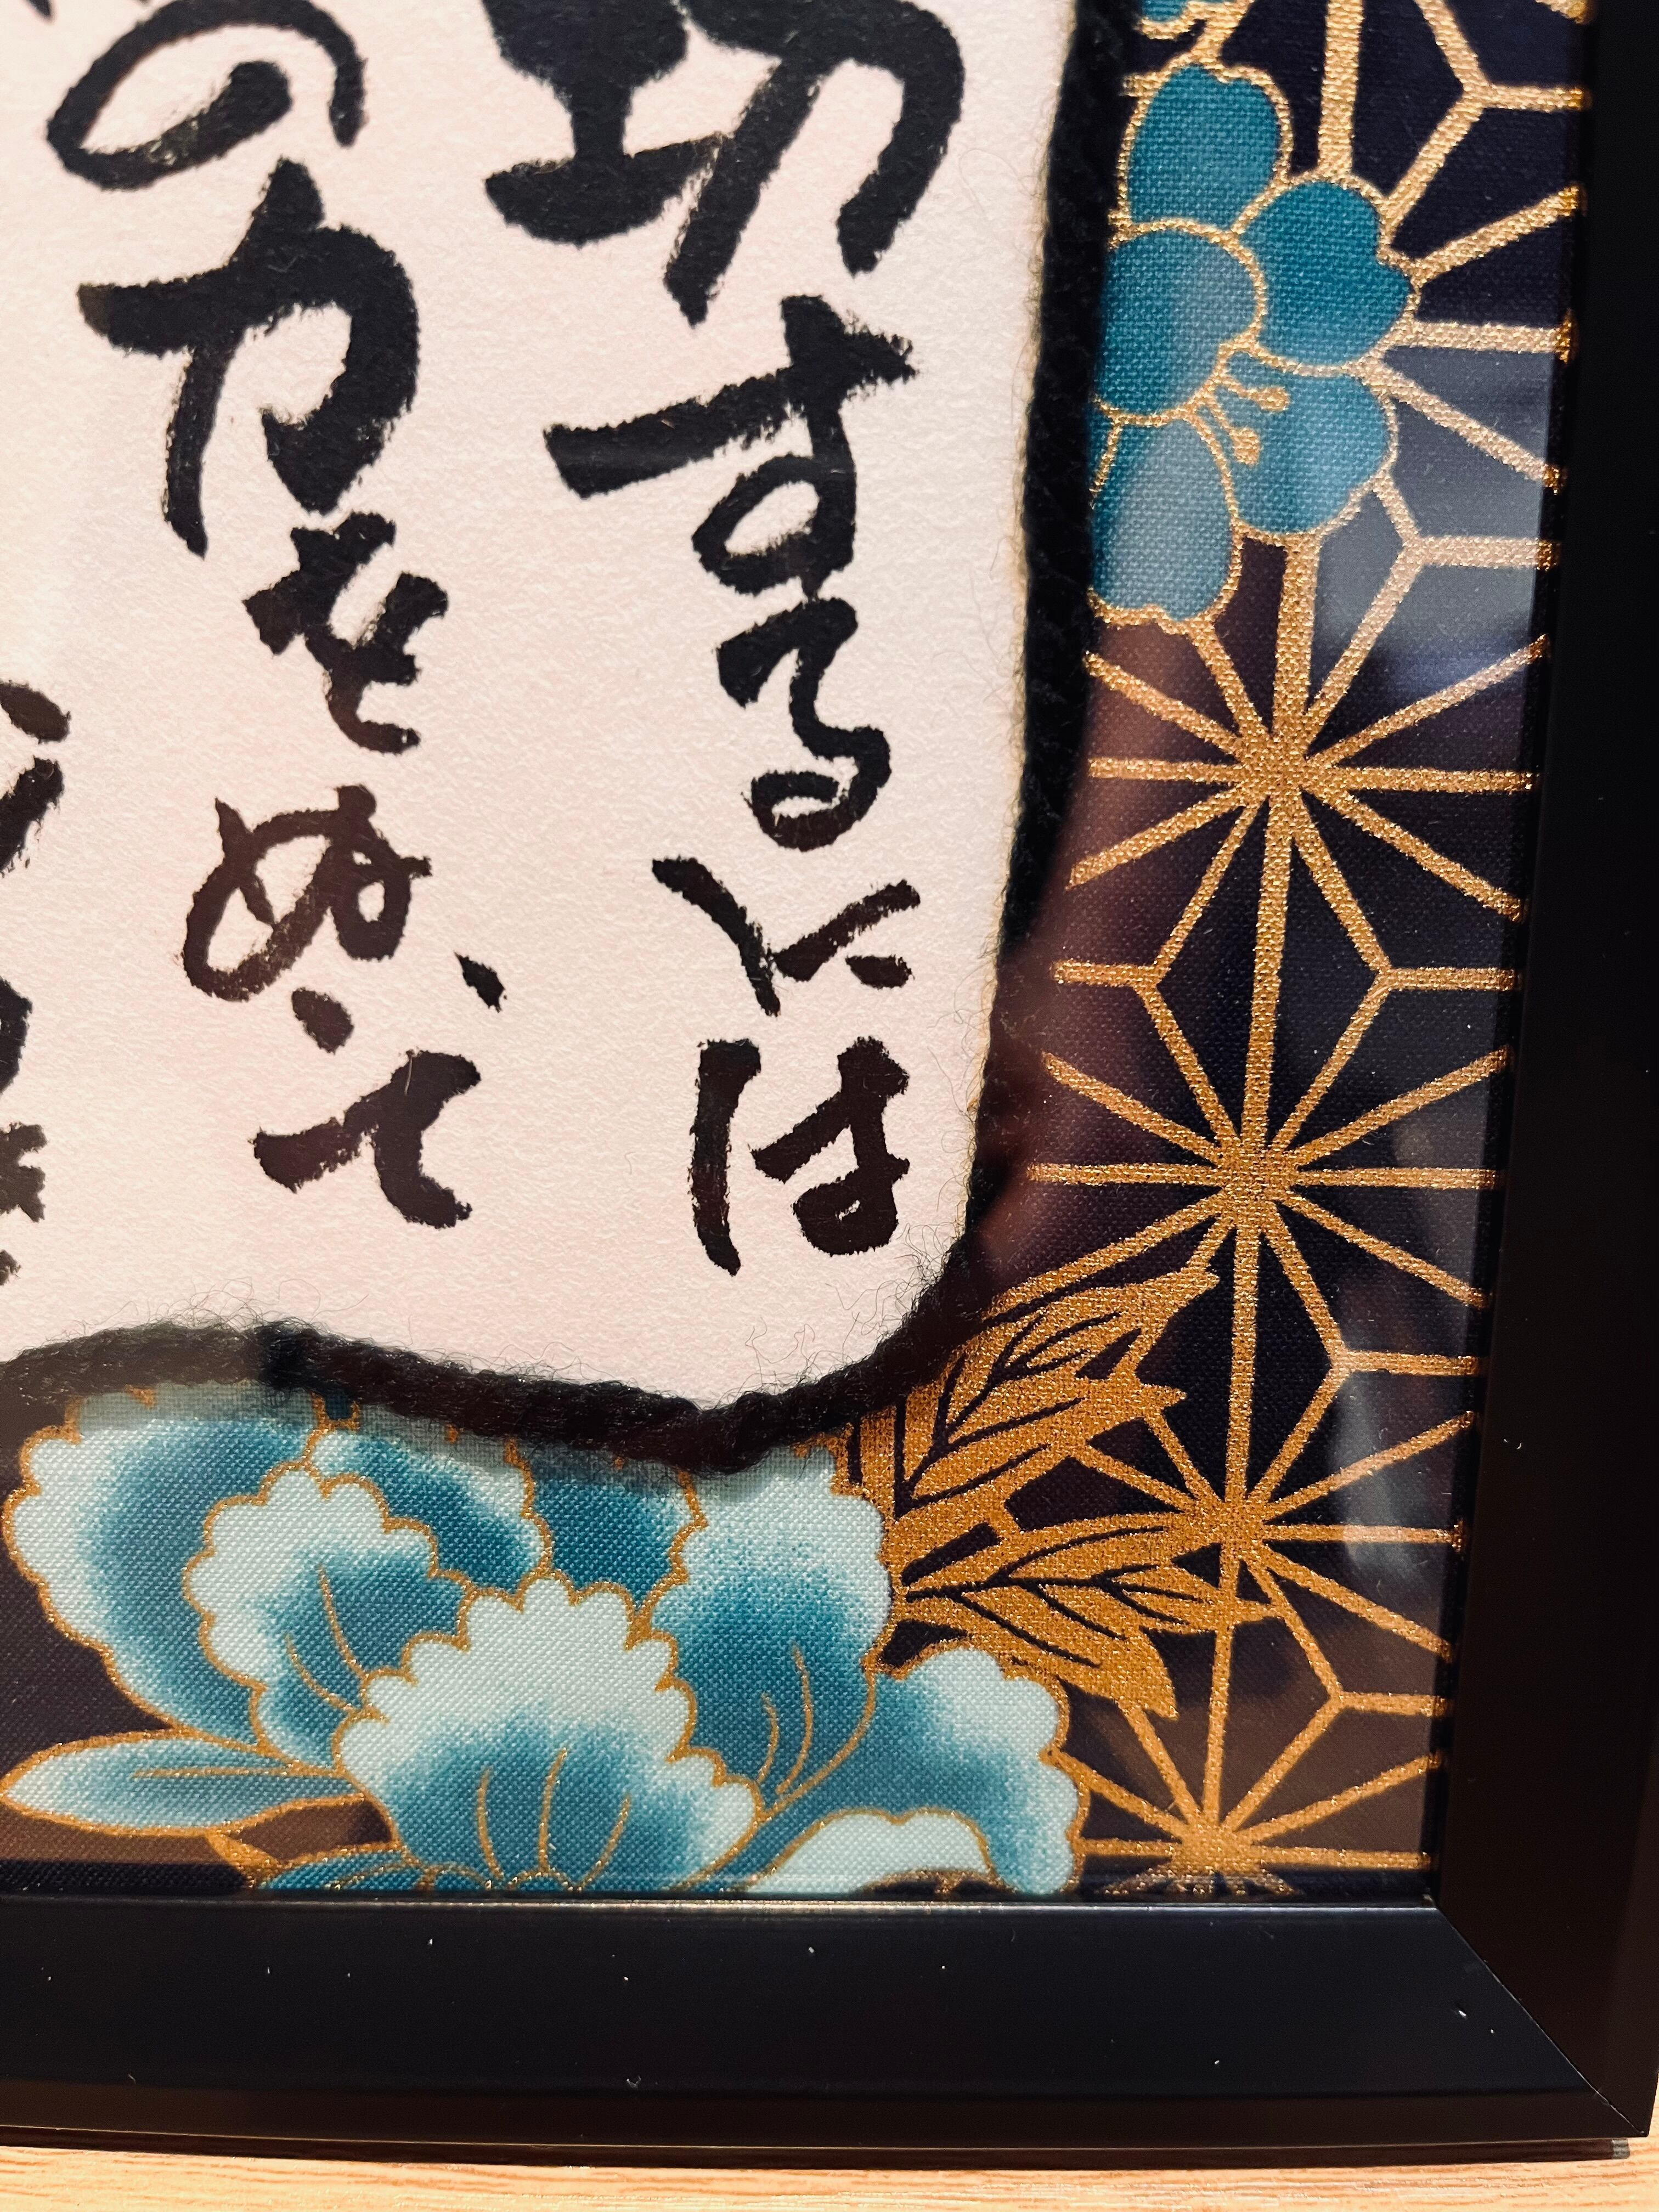 功するには
の力をぬいて